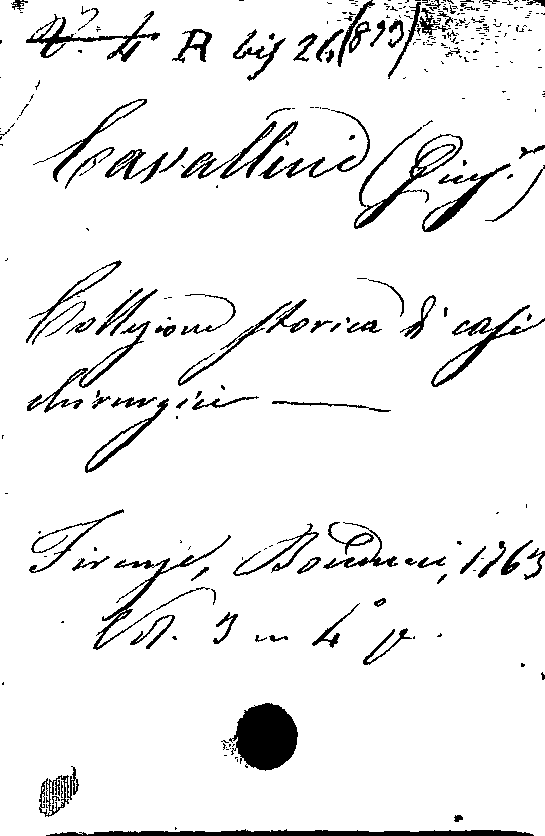 V. 4 A bis 26 (893)
Cavallini (Gius.e)
Collezione storica di casi
chirurgici —
Firenze, Bonducci, 1763
Vol. 3 in 4° p.